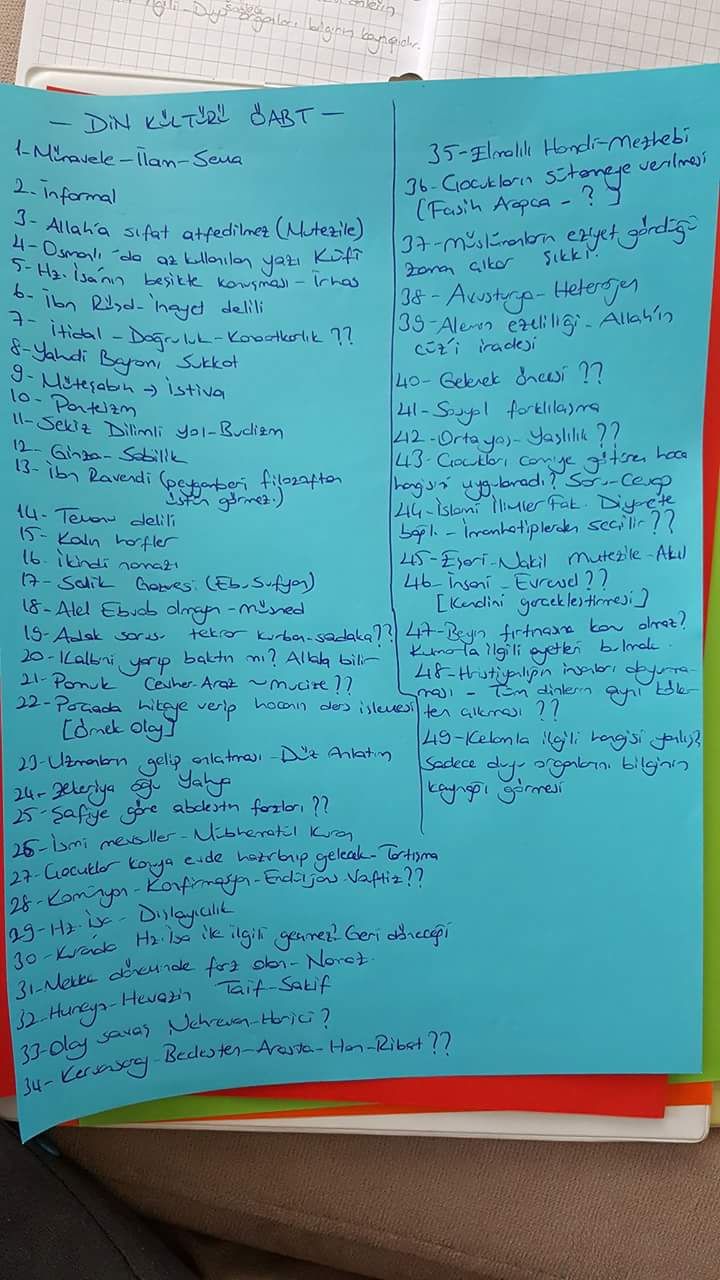 ilgili - Duyu organları bilginin kaynağıdır.
- DİN KÜLTÜRÜ ÖABT -
1- Münavele - İlam - Sema
2- İnformal
3- Allah'a sıfat atfedilmez (Mutezile)
4- Osmanlı'da az kullanılan yazı Kûfî
5- Hz. İsa'nın beşikte konuşması - İrhas
6- İbn Rüşd - İnayet delili
7- İtidal - Doğruluk - Kanaatkarlık ??
8- Yahudi Bayramı, Sukkot
9- Müteşabih → İstiva
10- Panteizm
11- Sekiz Dilimli yol - Budizm
12- Ginza - Sabilik
13- İbn Ravendi (peygamberi filozoftan
üstün görmez.)
14- Temanu delili
15- Kalın harfler
16- İkindi namazı
17- Sevik Gazvesi (Eb. Sufyan)
18- Alel Ebvab olmayan - müsned
19- Adak sorusu tekrar kurban - sadaka??
20- Kalbini yarıp baktın mı? Allah bilir
21- Pamuk Cevher - Araz ~ mucize ??
22- Parçada hikaye verip hocanın ders işlemesi
[Örnek Olay]
23- Uzmanların gelip anlatması - Düz Anlatım
24- Zekeriya oğlu Yahya
25- Şafiye göre abdestin farzları ??
26- İsmi mevsuller - Mübhematül Kuran
27- Çocuklar konuya evde hazırlanıp gelecek - Tartışma
28- Komünyon - Konfirmasyon - Endüljans - Vaftiz??
29- Hz. İsa - Dışlayıcılık
30- Kuranda Hz. İsa ile ilgili geçmez? Geri döneceği
31- Mekke döneminde farz olan - Namaz.
32- Huneyn - Hevazin Taif - Sakif
33- Olay savaş Nehrevan - Harici ?
34- Kervansaray - Bedesten - Arasta - Han - Ribat ??
35- Elmalılı Hamdi - Mezhebi
36- Çocukların sütanneye verilmesi
[Fasih Arapça - ?]
37- Müslümanların eziyet gördüğü
zaman çıkar şıkkı.
38- Avusturya - Heterojen
39- Alemin ezeliliği - Allah'ın
cüz'i iradesi
40- Gelenek öncesi ??
41- Sosyal farklılaşma
42- Orta yaş - Yaşlılık ??
43- Çocukları camiye götüren hoca
hangisini uygulamadı? Soru - Cevap
44- İslami İlimler Fak. Diyanete
bağlı. - İmamhatiplerden seçilir ??
45- Eşari - Nakil Mutezile - Akıl
46- İnsani - Evrensel ??
[Kendini gerçekleştirmesi]
47- Beyin fırtınasına konu olmaz?
Kumarla ilgili ayetleri bulmak.
48- Hristiyanlığın insanları doyurma-
ması - Tüm dinlerin aynı kökten
çıkması ??
49- Kelamla ilgili hangisi yanlış?
Sadece duyu organlarını bilginin
kaynağı görmesi